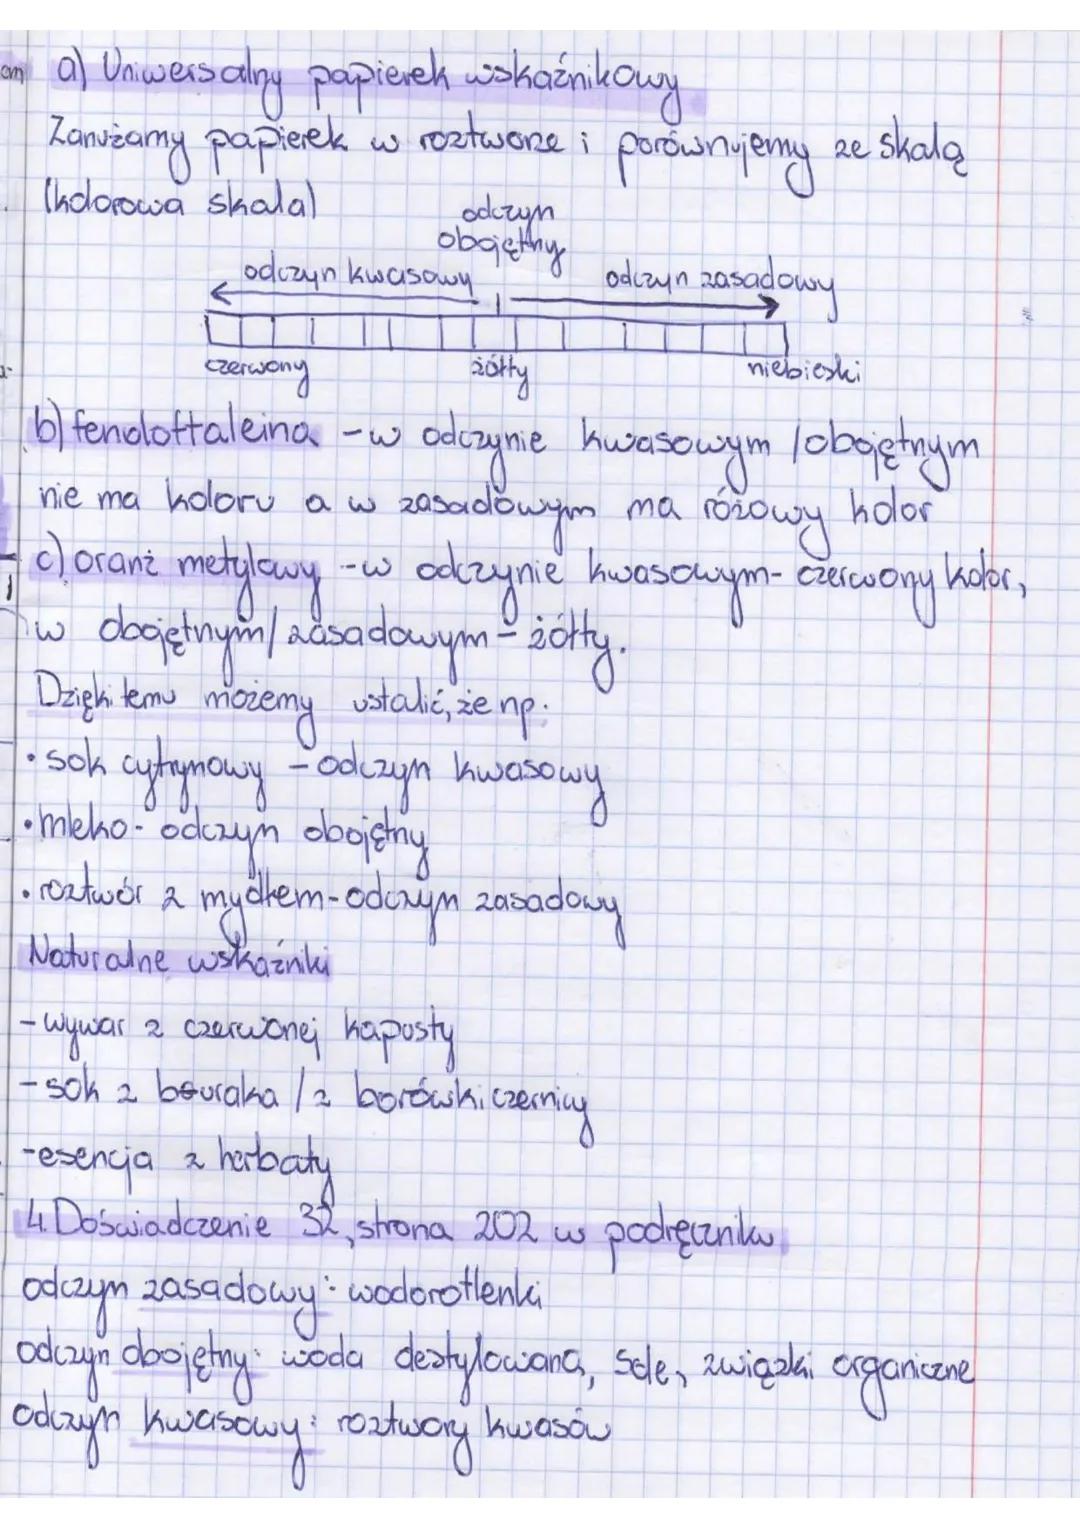 a) Uniwersalny papierek wskaźnikowy
Zanużamy papierek w roztworze i porównujemy ze skalą
(kolorowa skala)
odczyn
obojętny
odczyn kwasowy
odczyn zasadowy
czerwony żółty niebieski
b) fenoloftaleina - w odczynie kwasowym / obojętnym
nie ma koloru a w zasadowym ma różowy kolor
c) oranż metylowy - w odczynie kwasowym - czerwony kolor,
w obojętnym / zasadowym - żółty.
Dzięki temu możemy ustalić, że np.
• sok cytrynowy - odczyn kwasowy
• mleko - odczyn obojętny
• roztwór z mydłem - odczyn zasadowy
Naturalne wskaźniki
- wywar z czerwonej kapusty
- sok z buraka / z borówki czernicy
- esencja z herbaty
4. Doświadczenie 32, strona 202 w podręczniku
odczyn zasadowy: wodorotlenki
odczyn obojętny: woda destylowana, sole, związki organiczne
odczyn kwasowy: roztwory kwasów